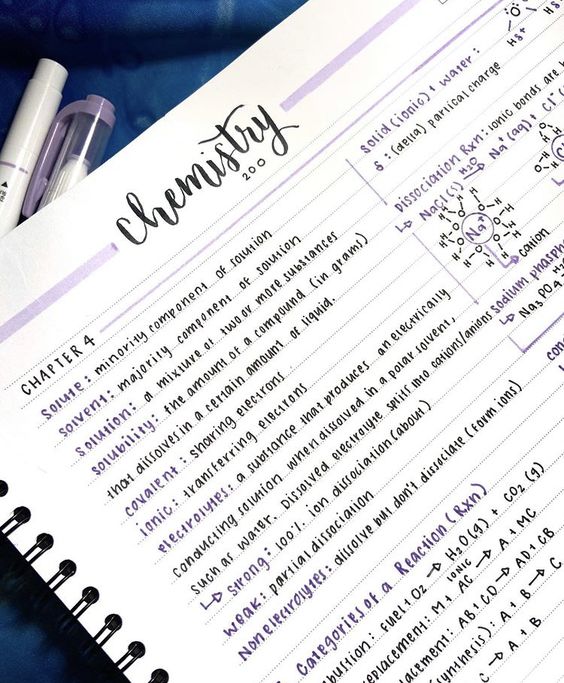 chemistry
200
CHAPTER 4
solute: minority component of solution
solvent: majority component of solution
solution: a mixture of two or more substances
solubility: the amount of a compound (in grams)
that dissolves in a certain amount of liquid.
covalent: sharing electrons
ionic: transferring electrons
electrolytes: a substance that produces an electrically
conducting solution when dissolved in a polar solvent,
such as water. Dissolved electrolyte split into cations/anions
↳ strong: 100% ion dissociation (about)
weak: partial dissociation
Nonelectrolytes: dissolve but don't dissociate (form ions)
Categories of a Reaction (Rxn)
bustion: fuel + O₂ → H₂O(g) + CO₂(g)
eplacement: M + AC → A + MC
IONIC
lacement: AB + CD → AD + CB
ynthesis): A + B → C
C → A + B
solid (ionic) + water:
δ: (delta) partical charge
Dissociation Rxn: ionic bonds are b
↳ NaCl(s) H₂O → Na⁺(aq) + Cl⁻
Na⁺
cation
sodium phosph
↳ Na₃PO₄